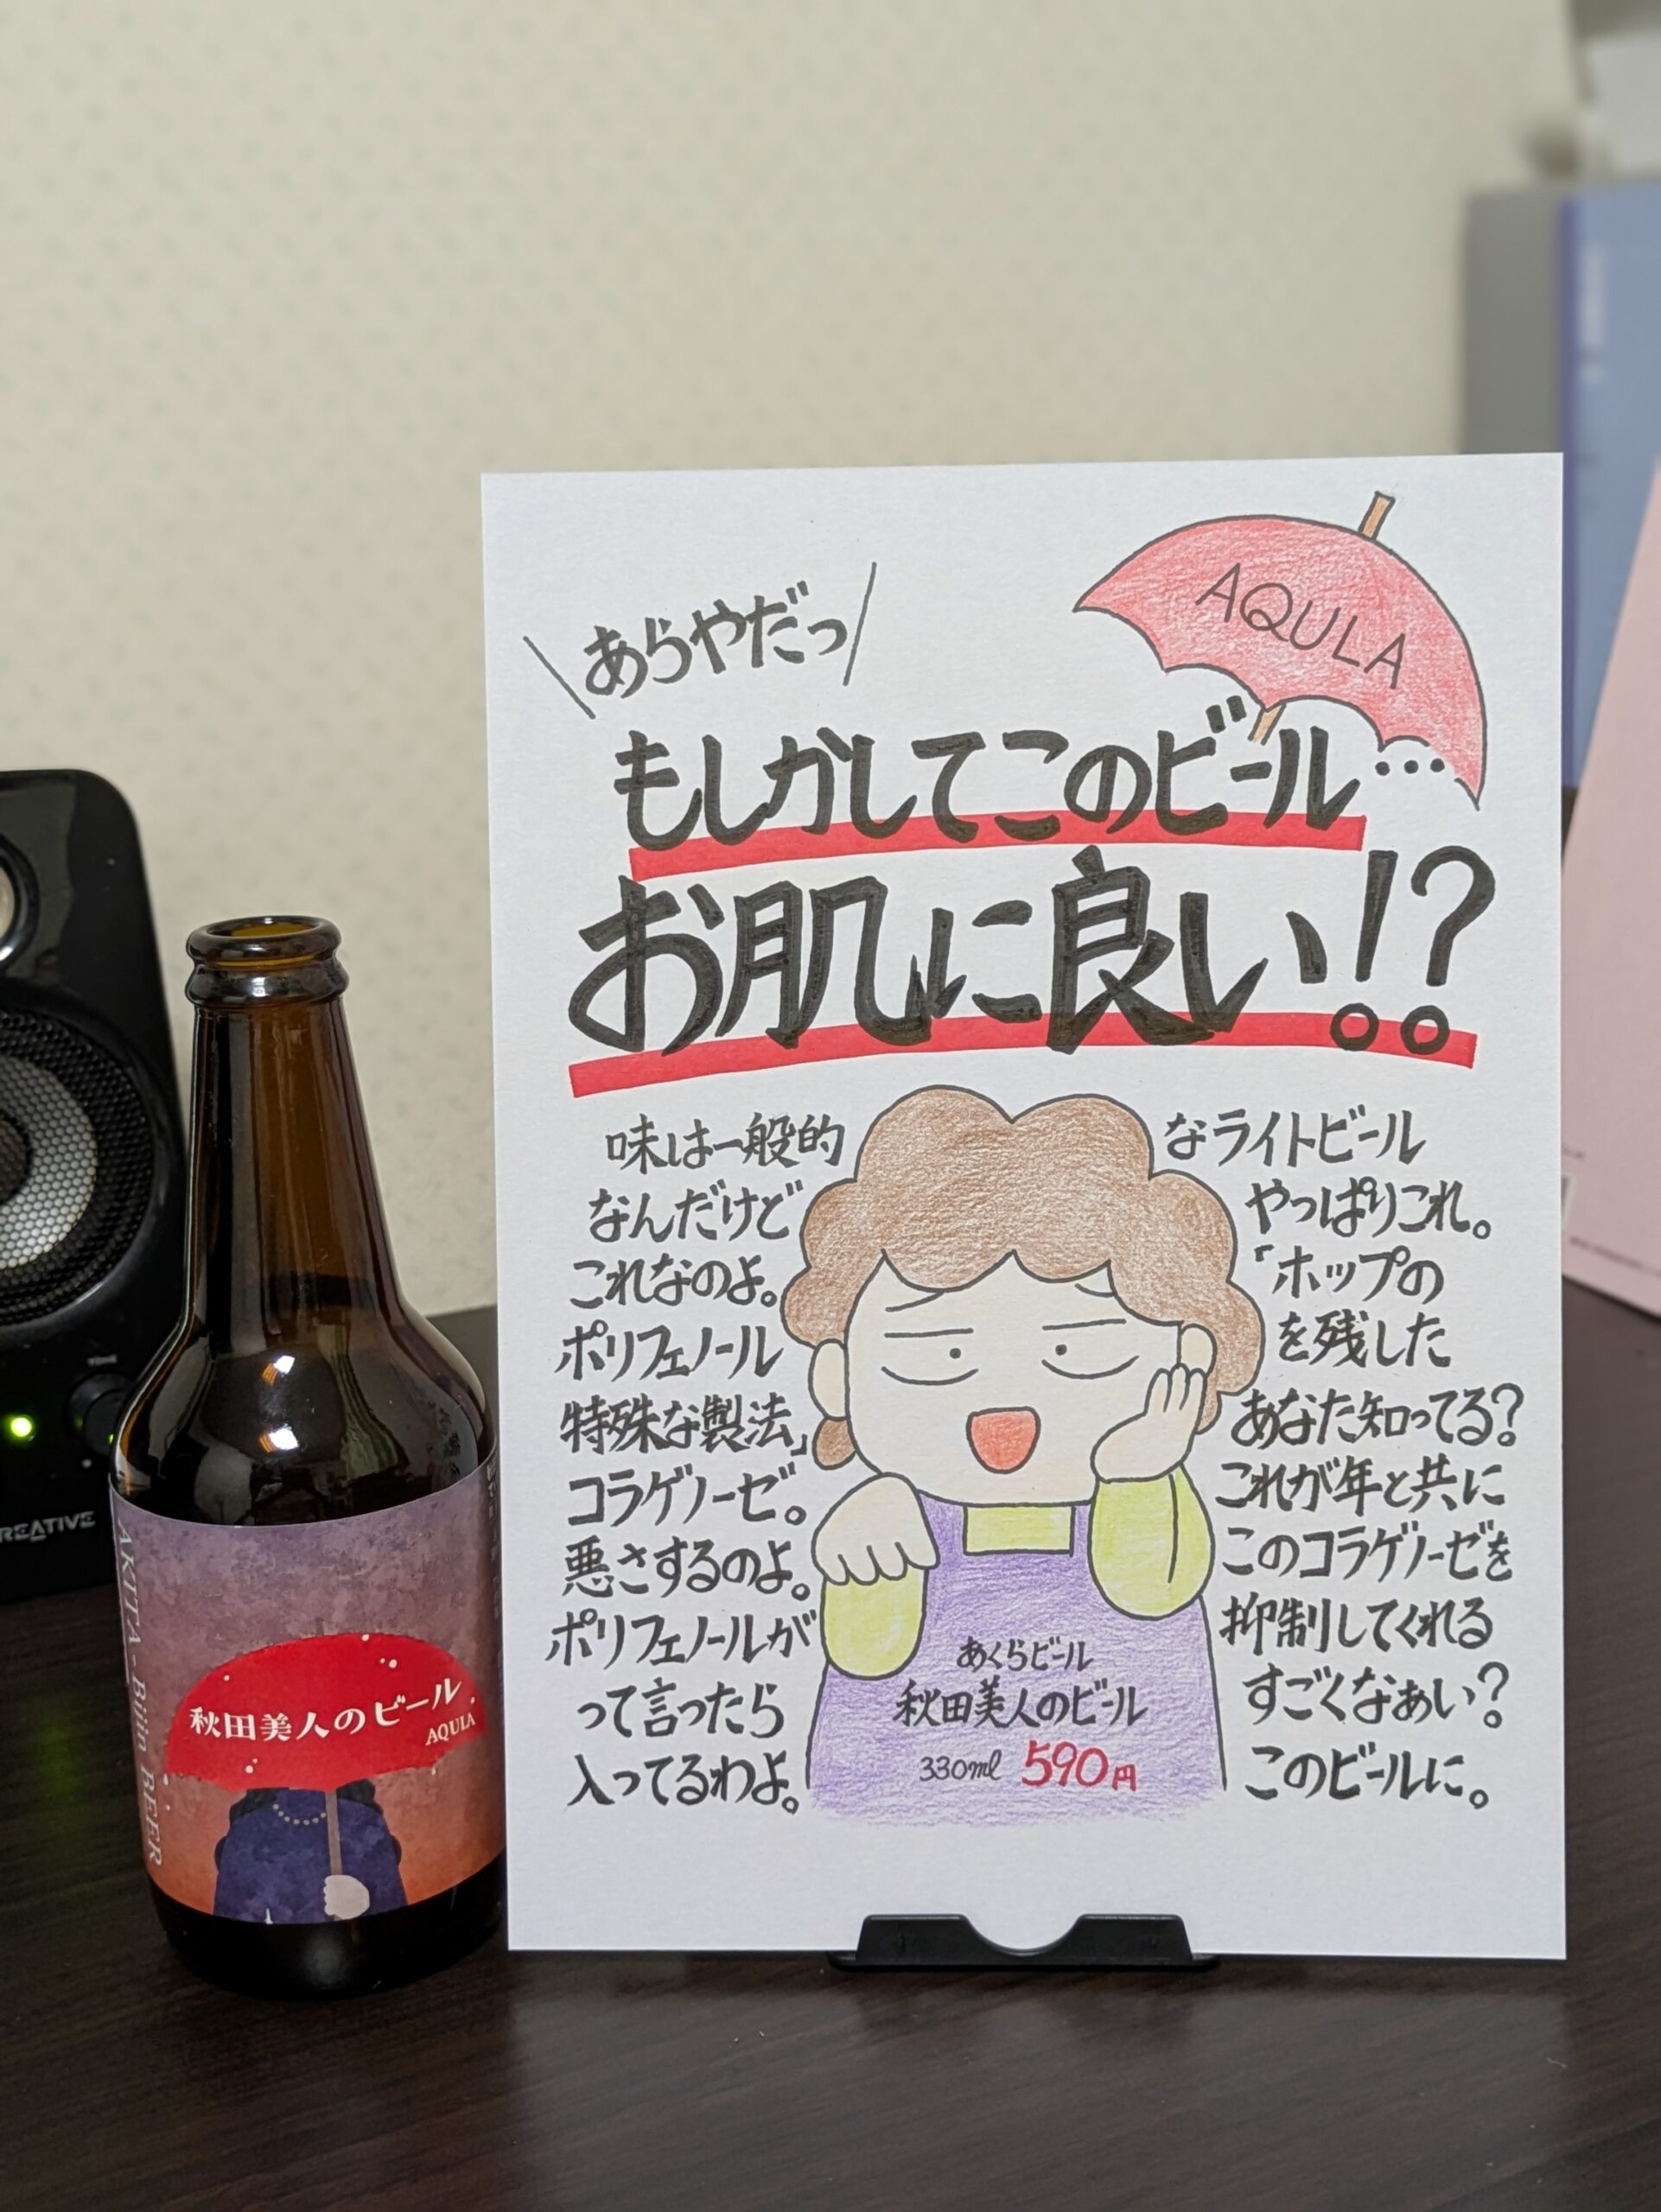 AQULA
あらやだっ
もしかしてこのビール…
お肌に良い!?
味は一般的なライトビール
なんだけどやっぱりこれ。
これなのよ。「ホップの
ポリフェノールを残した
特殊な製法」あなた知ってる?
コラゲノーゼ。これが年と共に
悪さするのよ。このコラゲノーゼを
ポリフェノールが抑制してくれる
って言ったらすごくなぁい?
入ってるわよ。このビールに。
あくらビール
秋田美人のビール
330ml 590円
AKITA-Bijin BEER
秋田美人のビール
AQULA
CREATIVE
TONE